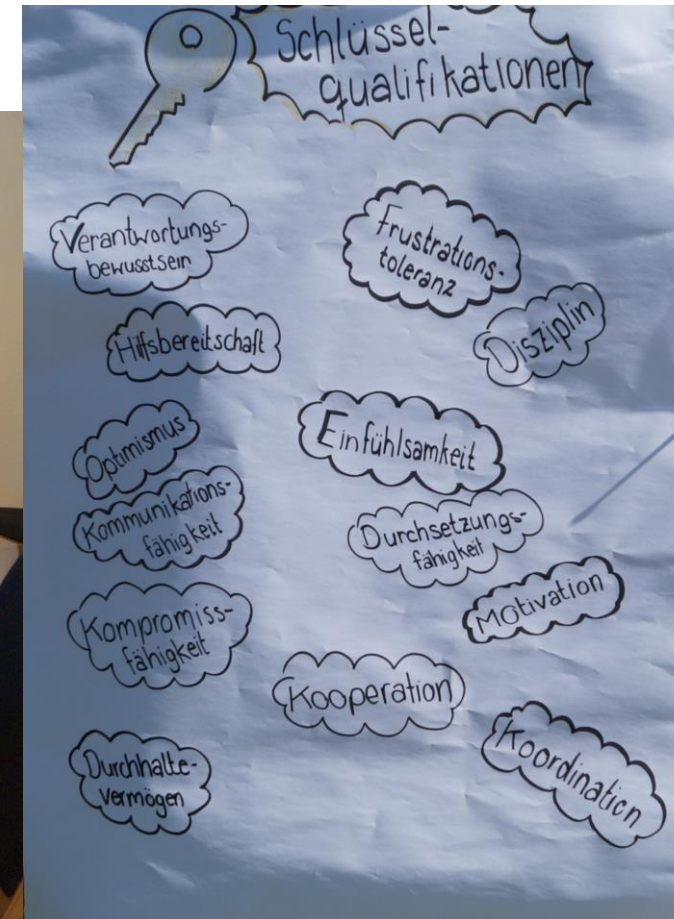 Schlüssel-
qualifikationen
Verantwortungs-
bewusstsein
Frustrations-
toleranz
Hilfsbereitschaft
Disziplin
Optimismus
Einfühlsamkeit
Kommunikations-
fähigkeit
Durchsetzungs-
fähigkeit
Motivation
Kompromiss-
fähigkeit
Kooperation
Koordination
Durchhalte-
vermögen